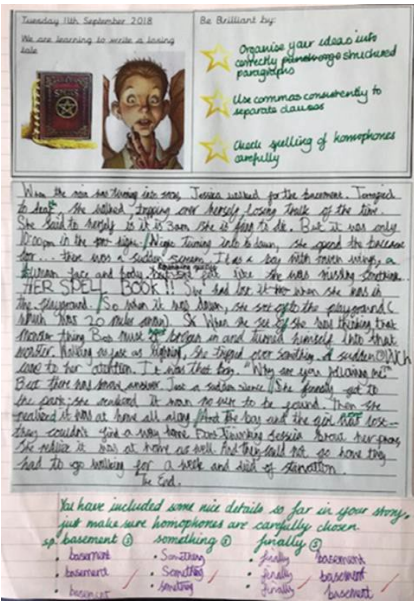 Tuesday 11th September 2018
We are learning to write a losing
tale
Be Brilliant by:
Organise your ideas into
correctly structured
paragraphs
Use commas consistently to
separate clauses
Check spelling of homophones
carefully
When the rain was turning into snow, Jessica walked for the basement.
to she walked tripping over herself losing track of the time
She said to herself is it is 3am she is going to die. But it was only
10:00pm in the night. turning into down, she opened the basement
for... there was a sudden scream. It was a boy with raven wings, a
human face and body, like she was missing something.
HER SPELL BOOK!! She had lost it when she was in
the playground. So when it was down, she set of to the playground (
which was 20 miles away). So When she set of she was thinking that
monster thing Boy must of broken in and turned himself into that
monster. Walking as just as lightning, she tripped over something. A sudden OUCH
came to her attention. It was that boy. "Why are you following me?"
But there was answer. Just a sudden silence! She finally got to
the park; she realised it was no were to be found. Then she
realized it was at home all along. And the boy and the girl lost
they couldn't find a way home. session her phone,
she realize it was at home as well. And they could not go home they
had to go walking for a week and died of starvation.
The End.
You have included some nice details so far in your story,
just make sure homophones are carefully chosen.
sp. basement ③ something ③ finally ③
basement Something finally basement
basement Something finally basement
basement something finally basement